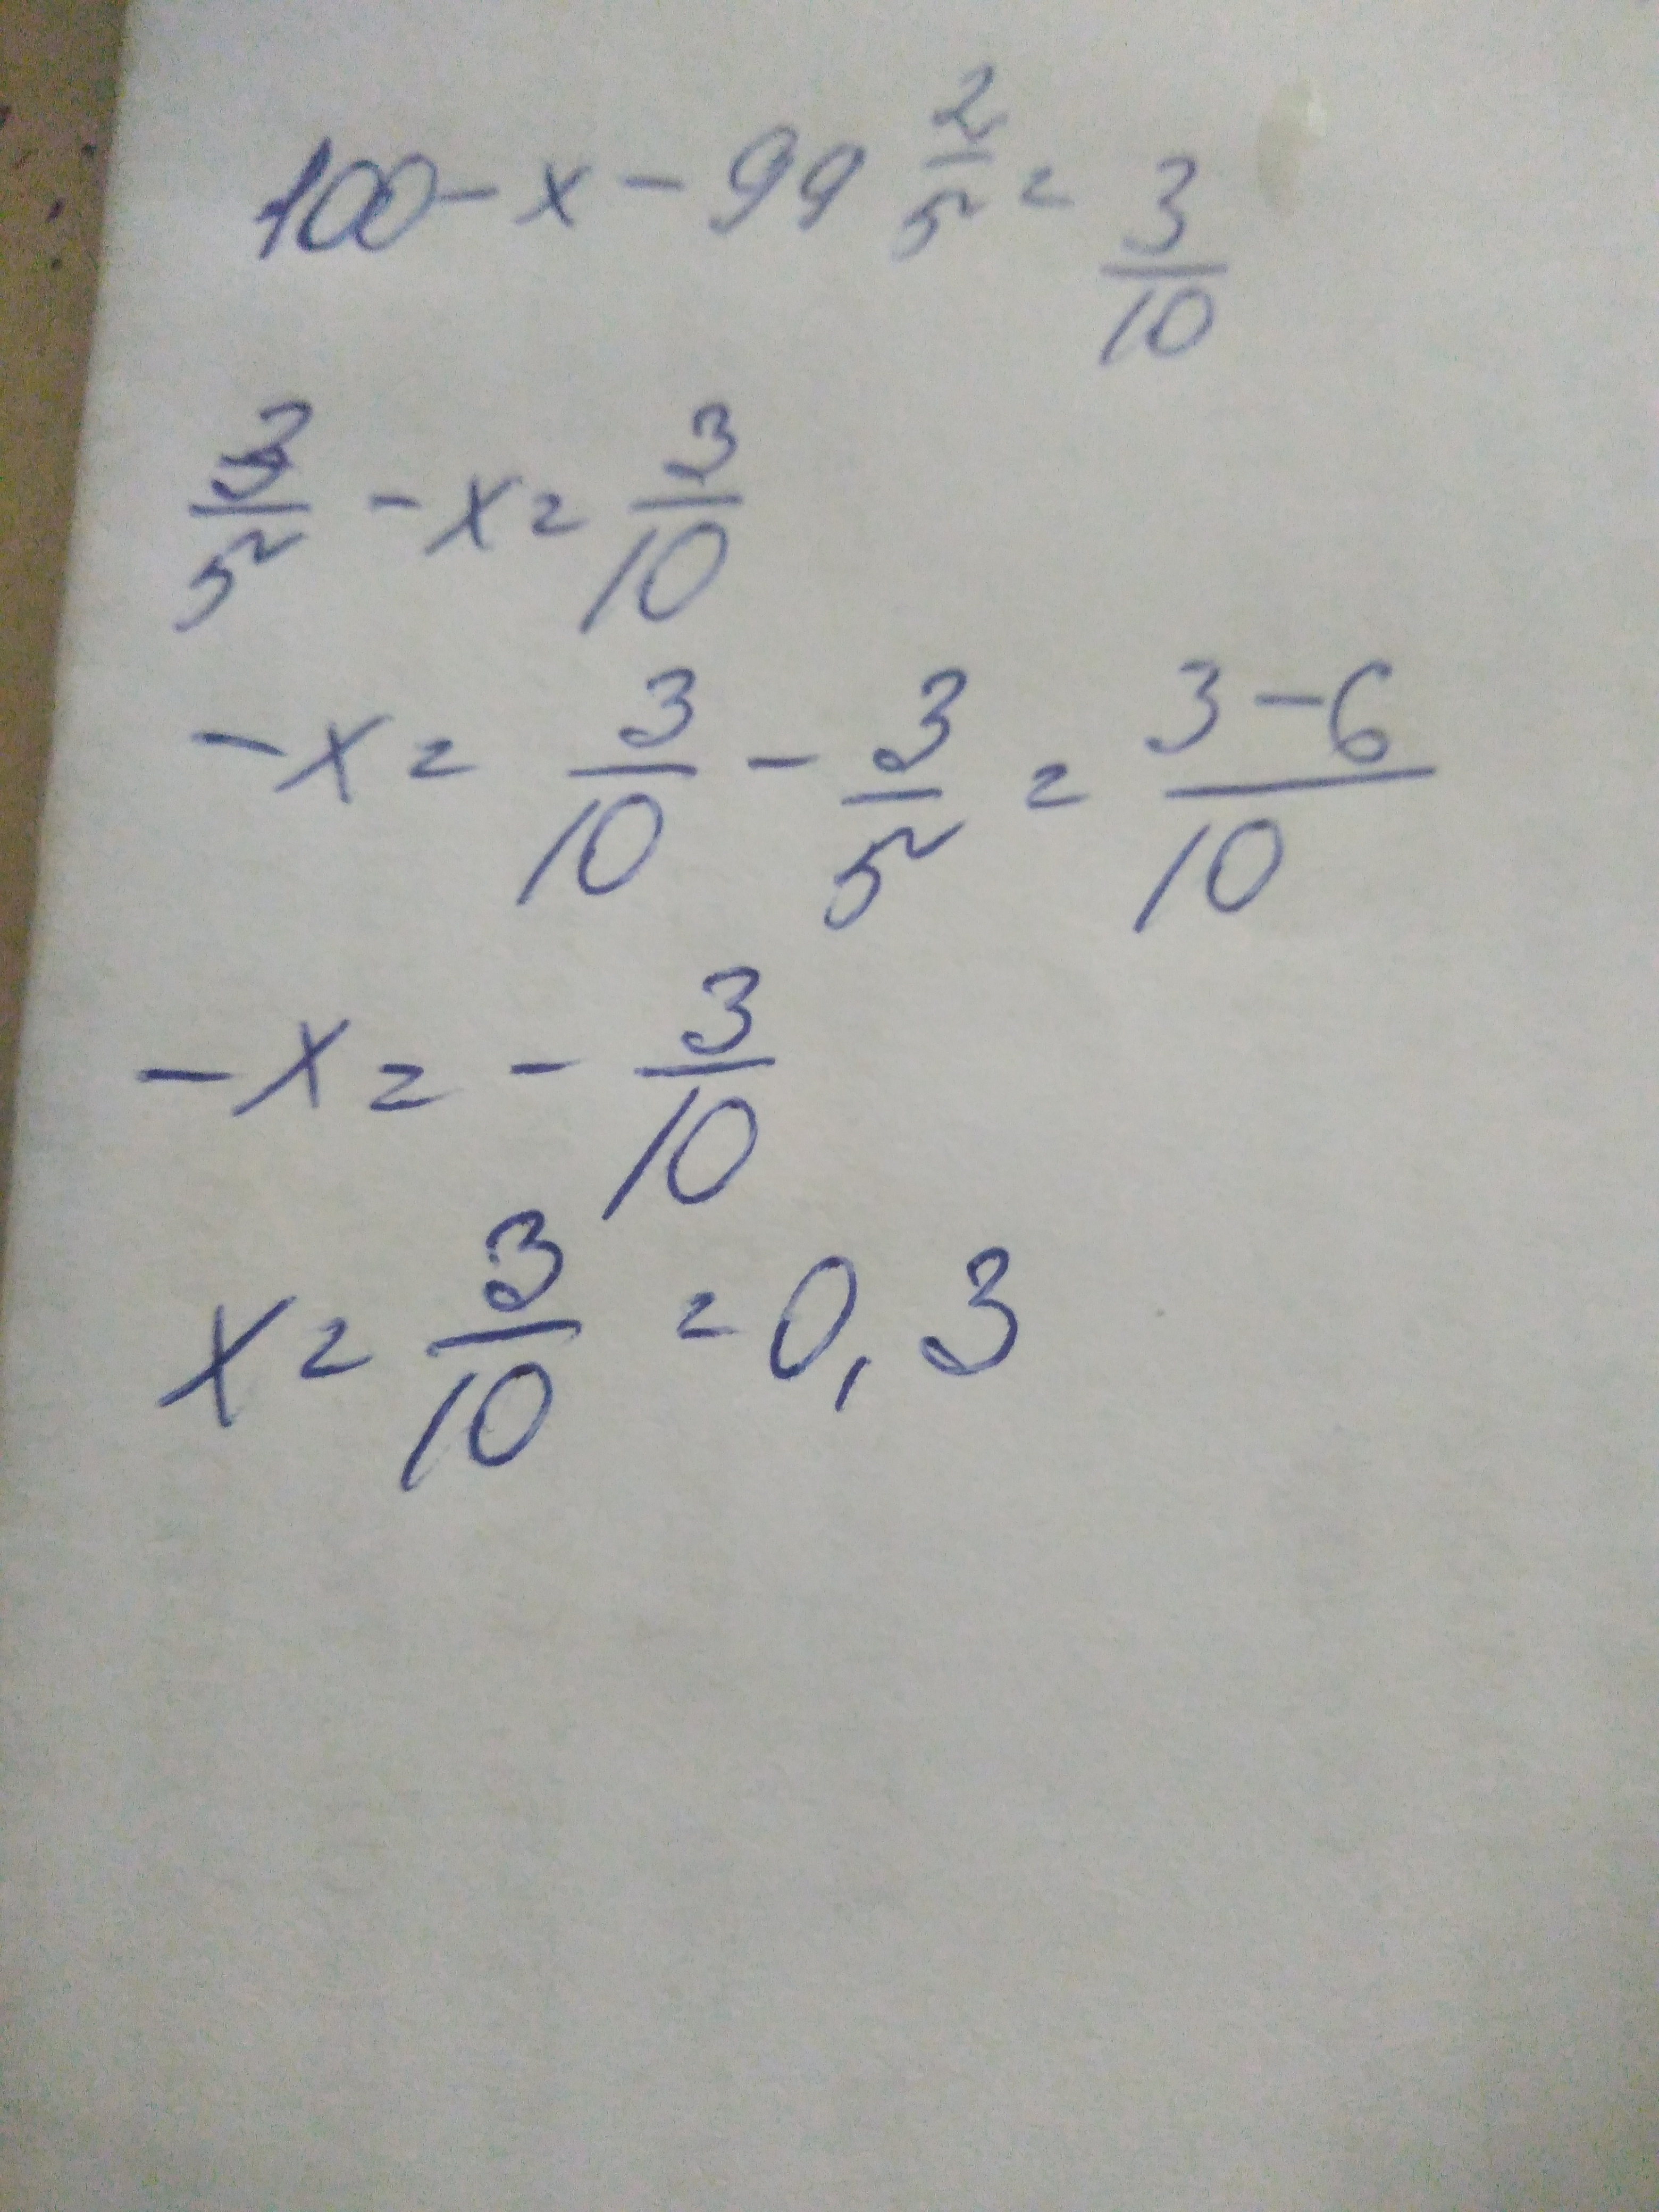 100 - x - 99 2/5 = 3/10
3/5 - x = 3/10
-x = 3/10 - 3/5 = 3-6/10
-x = - 3/10
x = 3/10 = 0,3